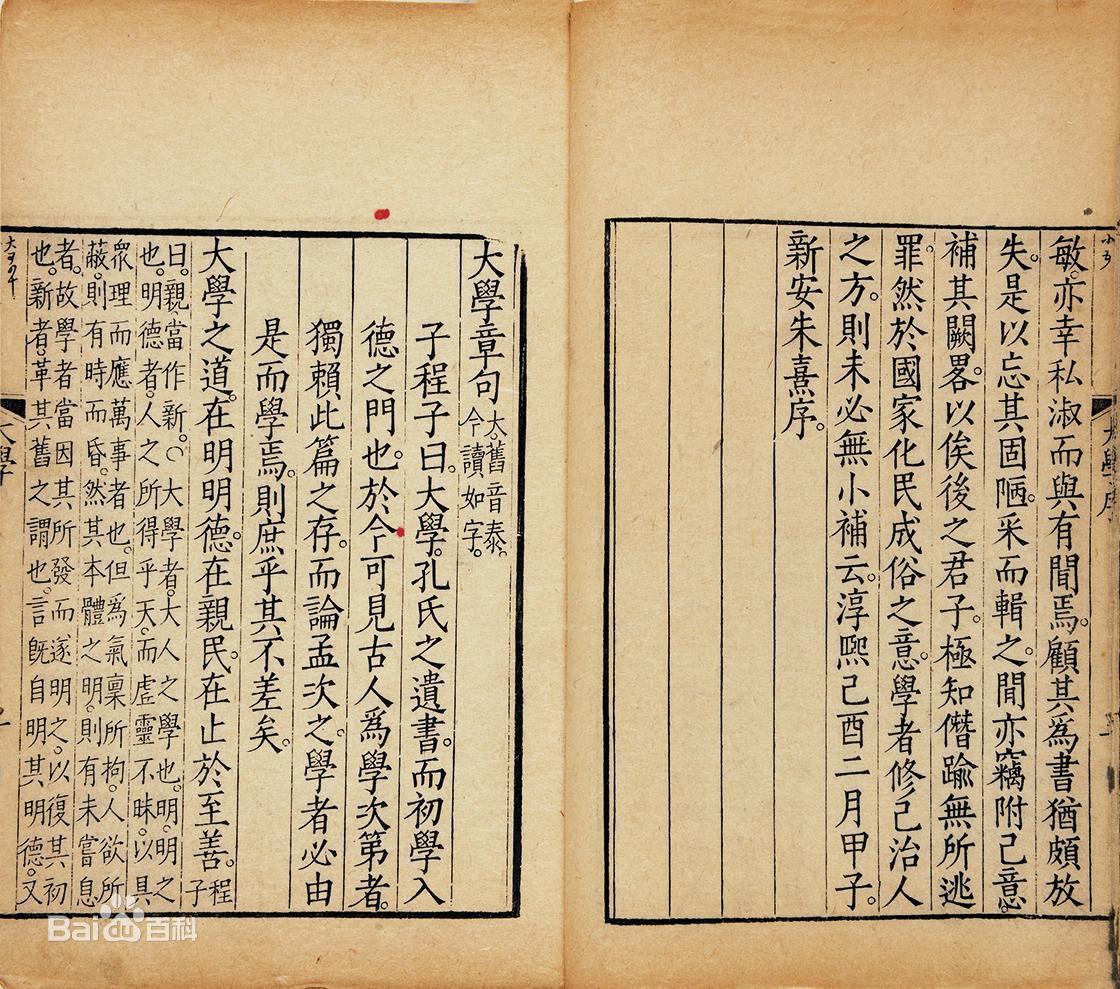 敏。亦幸私淑而與有聞焉。顧其爲書猶頗放
失。是以忘其固陋。采而輯之。閒亦竊附己意。
補其闕畧。以俟後之君子。極知僭踰無所逃
罪。然於國家化民成俗之意。學者修己治人
之方。則未必無小補云。淳熙己酉二月甲子。
新安朱熹序。
大學序
大學章句
大。舊音泰。
今讀如字。
子程子曰。大學。孔氏之遺書。而初學入
德之門也。於今可見古人爲學次第者。
獨賴此篇之存。而論孟次之。學者必由
是而學焉。則庶乎其不差矣。
大學之道。在明明德。在親民。在止於至善。
程
子
曰。親。當作新。○大學者。大人之學也。明。明之
也。明德者。人之所得乎天。而虛靈不昧。以具
眾理而應萬事者也。但爲氣稟所拘。人欲所
蔽。則有時而昏。然其本體之明。則有未嘗息
者。故學者當因其所發而遂明之。以復其初
也。新者。革其舊之謂也。言旣自明其明德。又
大學
Baidu百科